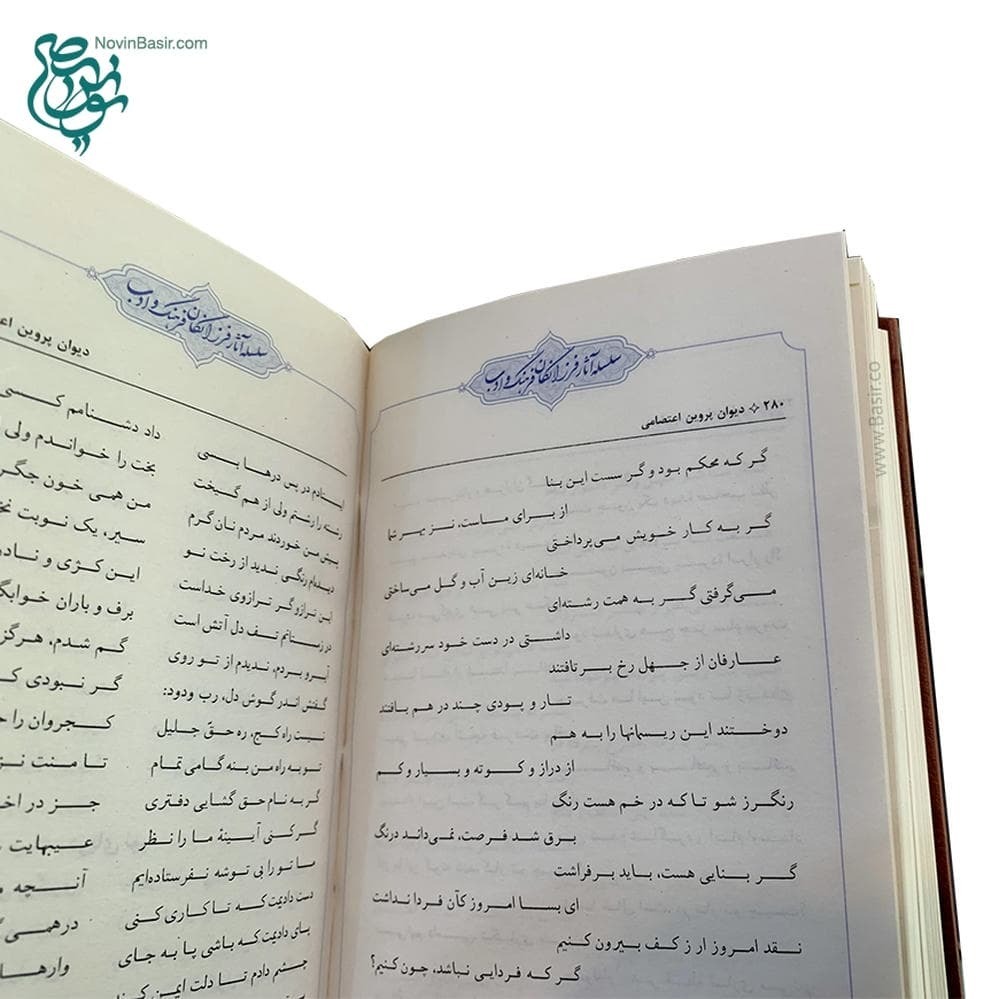 NovinBasir.com
نوین بصیر
www.Basir.co
سلسله آثار فرزانگان فرهنگ و ادب
۲۸۰ ✧ دیوان پروین اعتصامی
گر که محکم بود و گر سست این بنا
از برای ماست، نز بهر شما
گر به کار خویش می‌پرداختی
خانه‌ای زین آب و گل می‌ساختی
می‌گرفتی گر به همت رشته‌ای
داشتی در دست خود سررشته‌ای
عارفان از جهل رخ برتافتند
تار و پودی چند در هم بافتند
دوختند این ریسمانها را به هم
از دراز و کوته و بسیار و کم
رنگرز شو تا که در خم هست رنگ
برق شد فرصت، نمی‌داند درنگ
گر بنایی هست، باید برفراشت
ای بسا امروز کآن فردا نداشت
نقد امروز ار ز کف بیرون کنیم
گر که فردایی نباشد، چون کنیم؟
سلسله آثار فرزانگان فرهنگ و ادب
دیوان پروین
داد دشنامم کسی
ایستادم در پس درها بسی
بخت را خواندم ولی
رشته را رشتم ولی از هم گسیخت
من همی خون جگر
پیش من خوردند مردم نان گرم
سیر، یک نوبت
دیده‌ام رنگی ندید از رخت نو
این کژی و
این ترازو گر ترازوی خداست
برف و باران
در زمستانم تف دل آتش است
گم شدم، هرگز
آبرو بردم، ندیدم از تو روی
گر نبودی
گفتش اندر گوش دل، رب ودود:
کجروان را
نیست راه کج، ره حق جلیل
تا منت
تو به راه من بنه گامی تمام
جز در
گر به نام حق گشایی دفتری
عیبهایت
گر کنی آیینهٔ ما را نظر
آنچه
ما تو را بی توشه نفرستاده‌ایم
درهمی
دست دادیمت که تا کاری کنی
پای دادیمت که باشی پا به جای
چشم دادم تا دلت ایمن کند